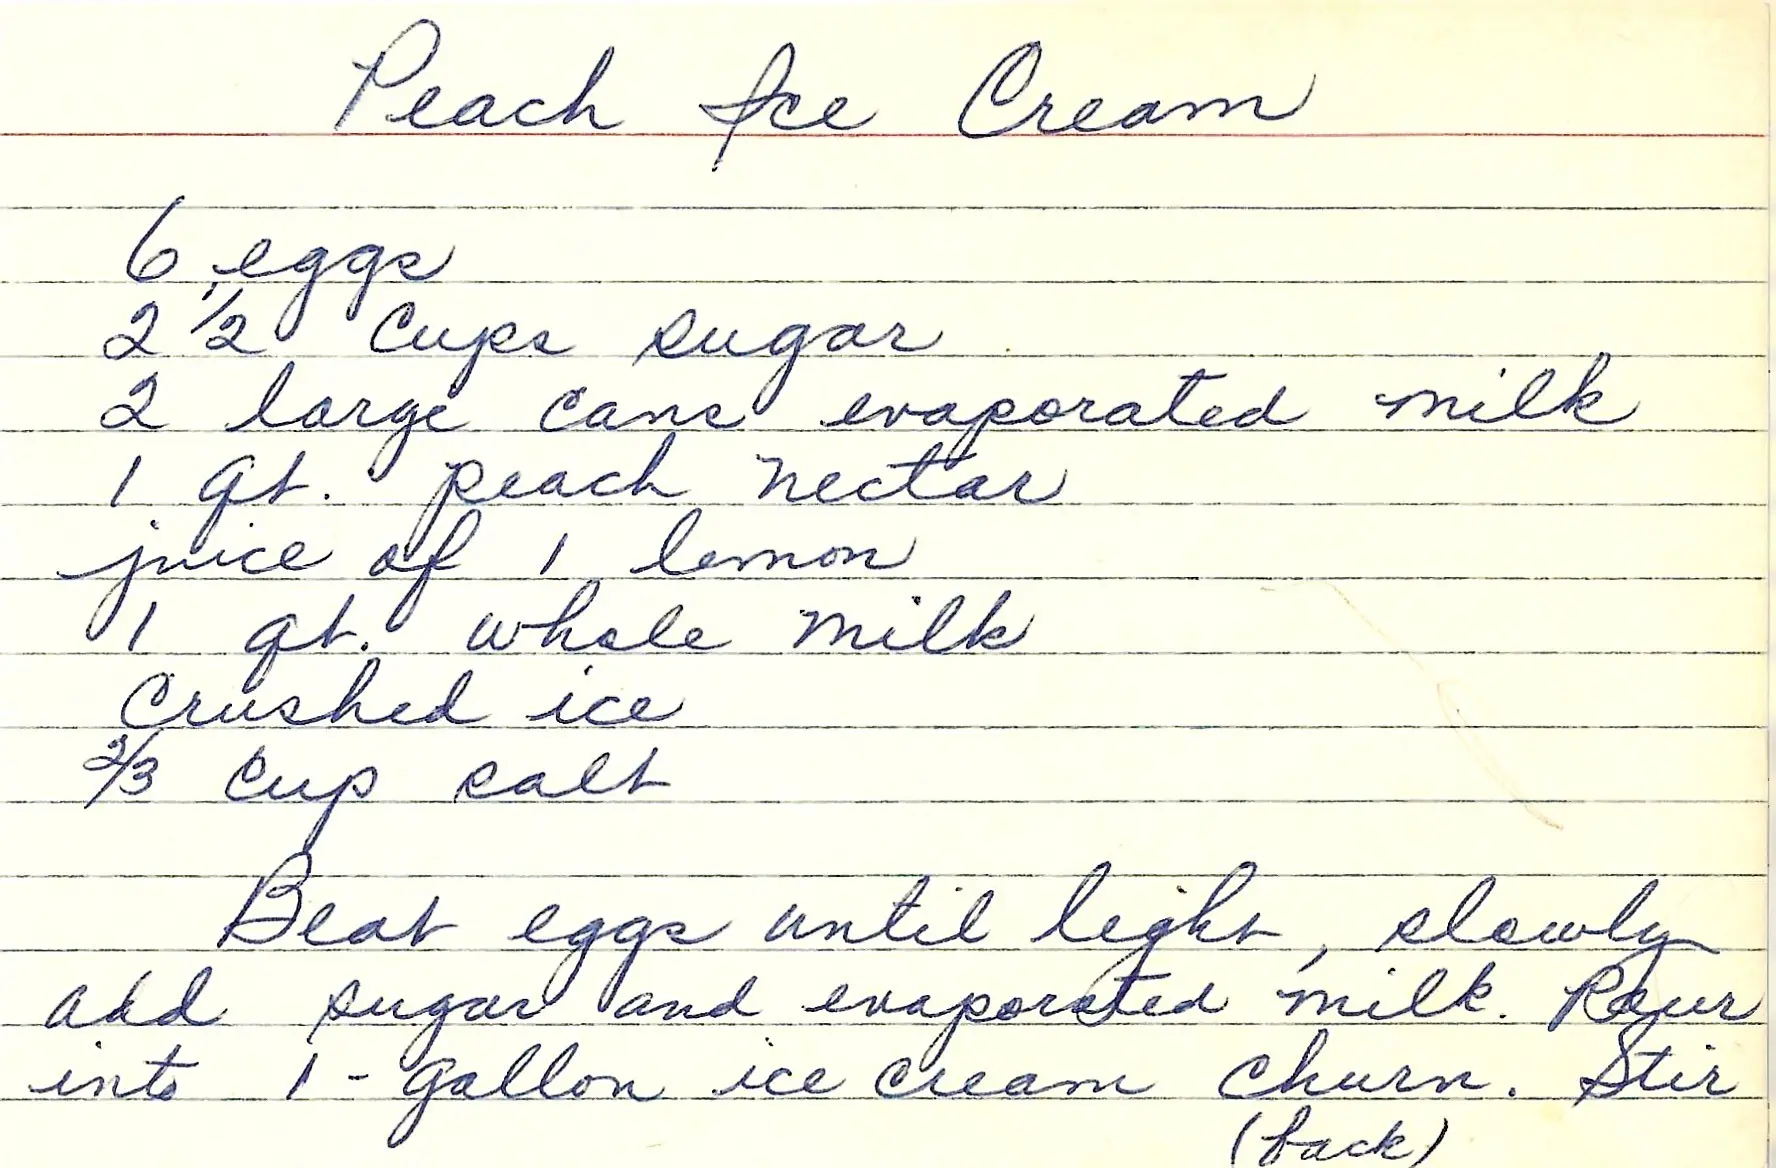 Peach Ice Cream
6 eggs
2 1/2 cups sugar
2 large cans evaporated milk
1 qt. peach nectar
juice of 1 lemon
1 qt. whole milk
Crushed ice
2/3 cup salt
Beat eggs until light, slowly
add sugar and evaporated milk. Pour
into 1-gallon ice cream churn. Stir
(back)